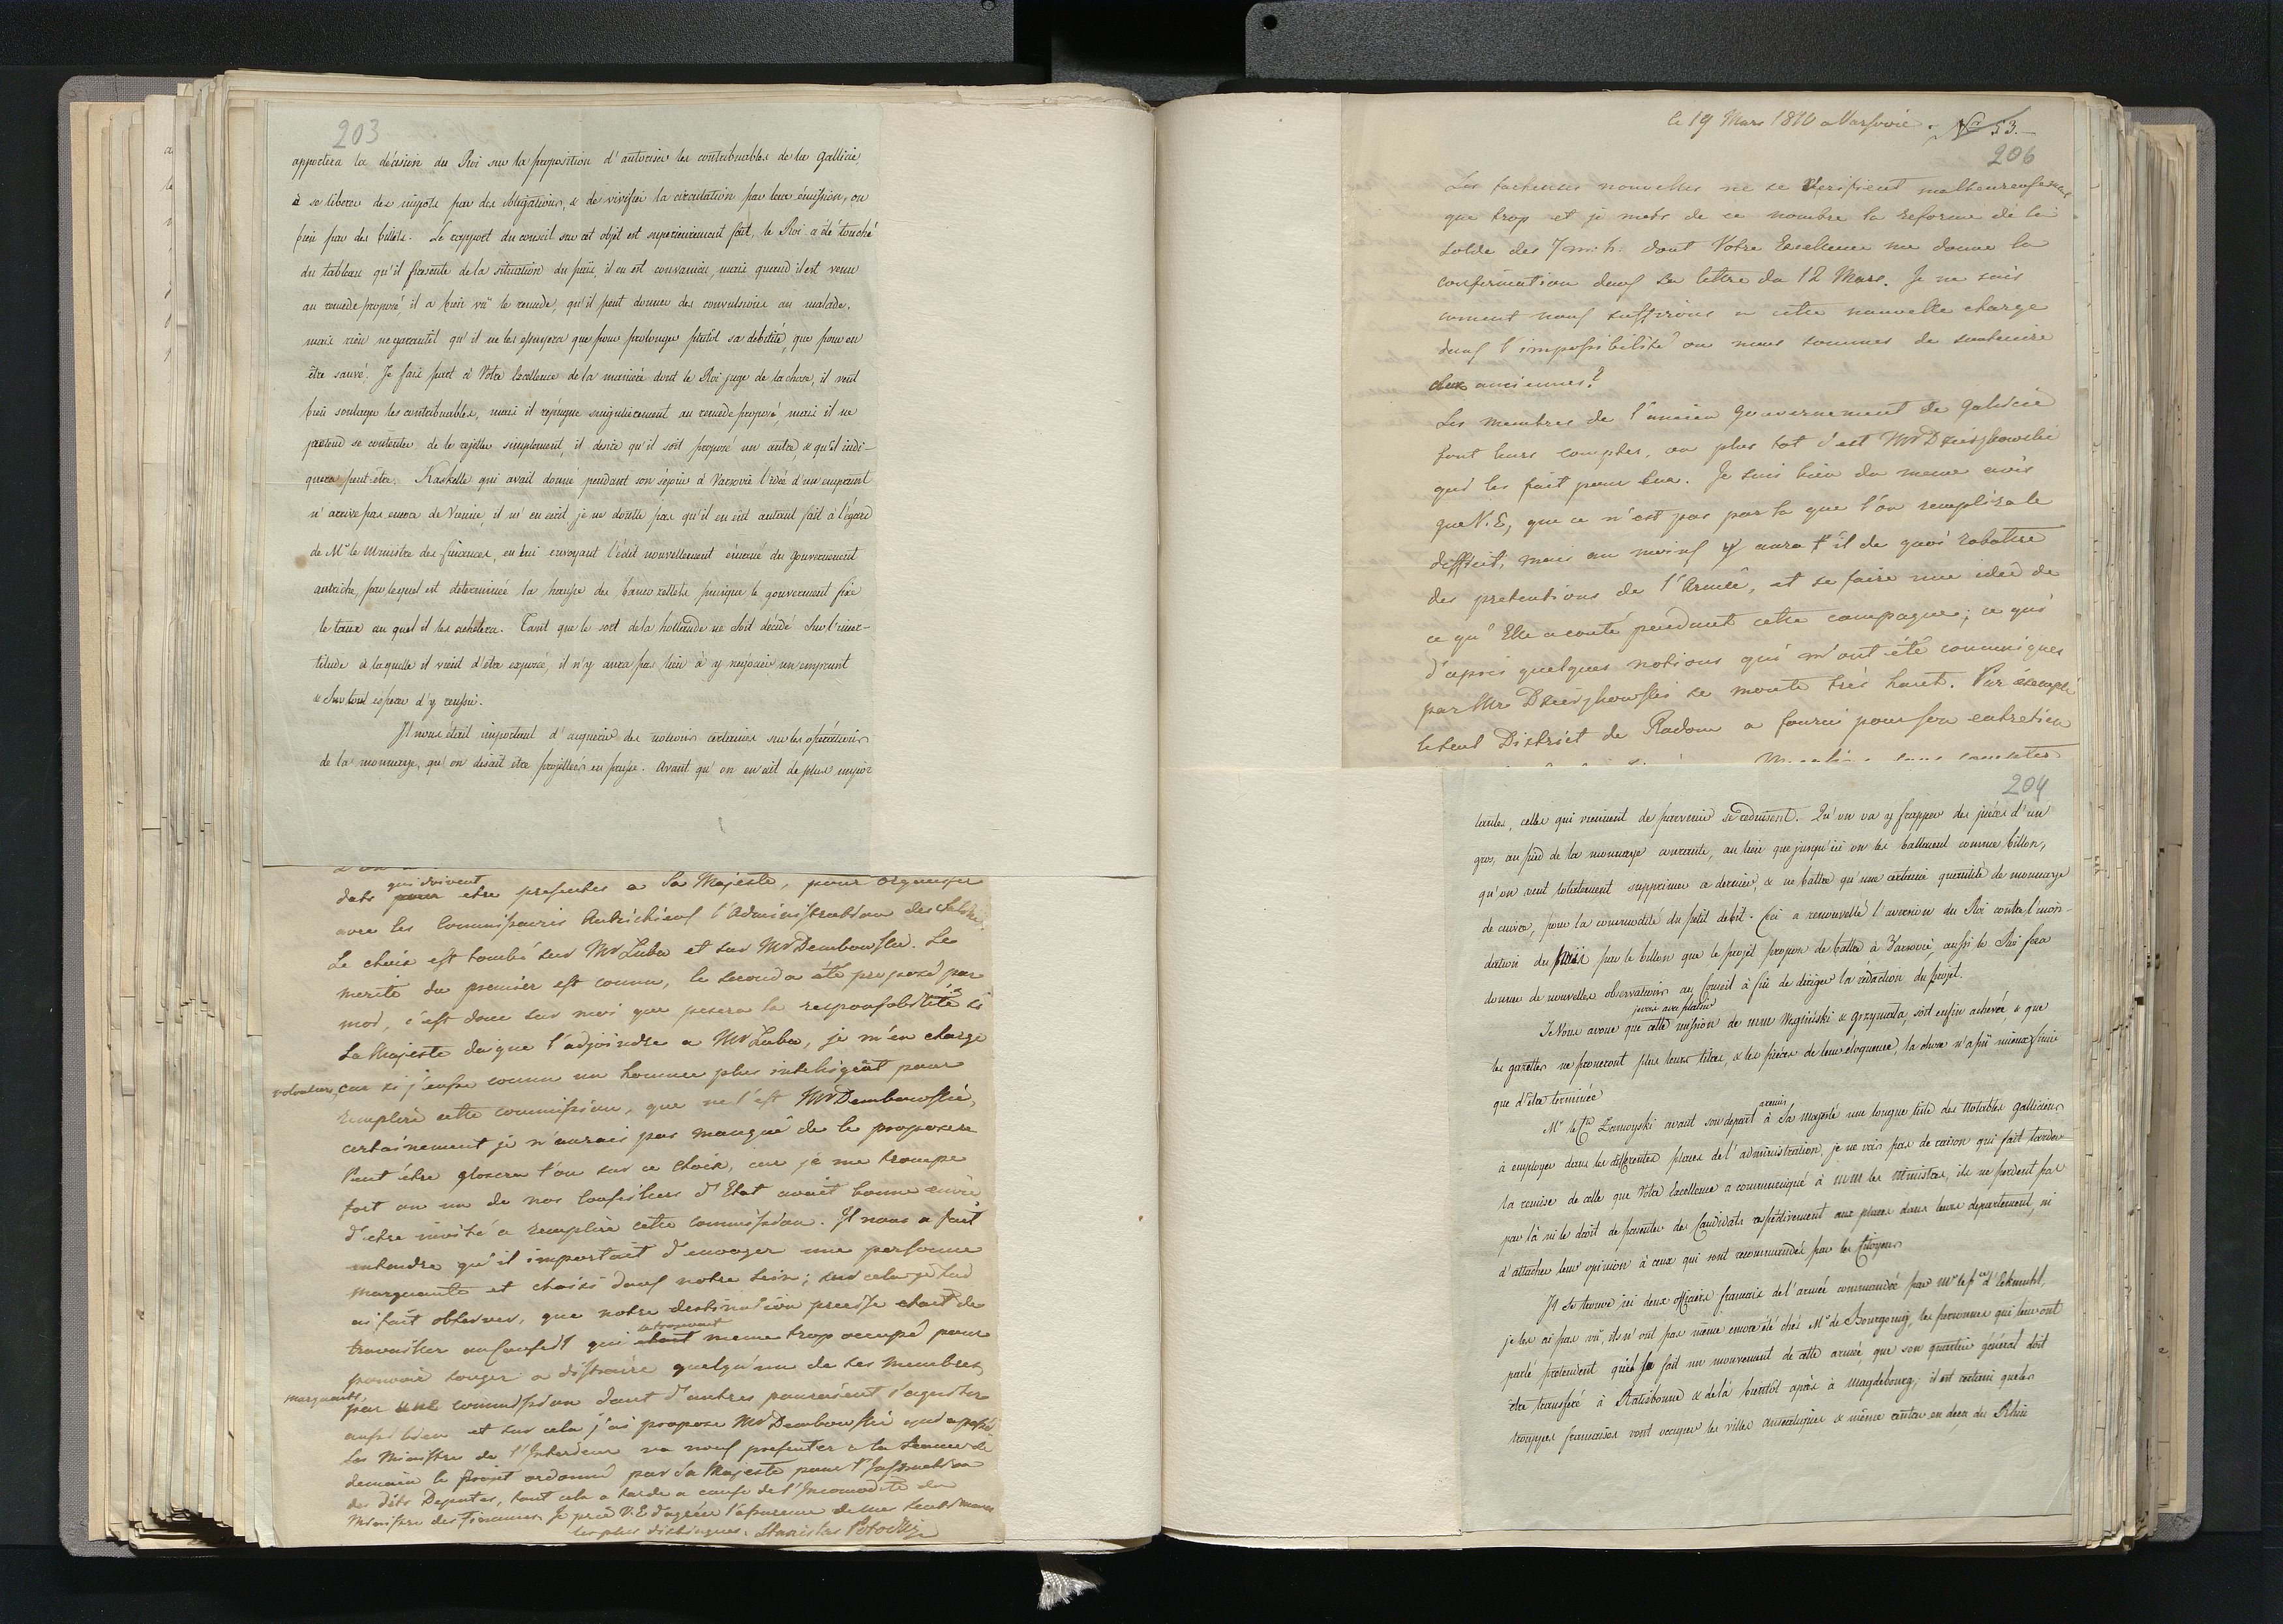 203
apportera la décision du Roi sur la proposition d'autoriser les contribuables de la Gallicie,
à se liberer des impots par des obligations, & de vivifier la circulation par leur émission, ou
bien par des billets. Le rapport du conseil sur cet objet est superieurement fait, le Roi a été touché
du tableau qu'il presente de la situation du païs, il en est convaincu, mais quand il est venu
au remede proposé il a bien vû le remede, qu'il peut donner des convulsions au malade,
mais rien ne garantit qu'il ne les essuyera que pour prolonger plutôt sa debilité, que pour en
être sauvé. Je fais part à Votre Excellence de la manière dont le Roi juge de la chose, il veut
bien soulager les contribuables, mais il repugne singulierement au remede proposé, mais il ne
pretend se contenter de le rejetter simplement, il desire qu'il soit proposé un autre, & qu'il indi-
quera peut-etre. Kaskelle qui avait donné pendant son séjour à Varsovie l'idée d'un emprunt
n'arrive pas encore de Vienne, il m'en écrit je ne doute pas qu'il en eut autant fait à l'égard
de Mr le Ministre des finances, en lui envoyant l'édit nouvellement émané du gouvernement
autriche, par lequel est determinée la hausse des banco zettels puisque le gouvernement fixe
le taux au quel il les achetera. Tant que le sort de la hollande ne soit décidé sur l'incer-
titude à laquelle il vient d'être exposé, il n'y aura pas lieu à y negocier un emprunt
& surtout esperer d'y reussir.
Il nous était important d'acquerir des notions certaines sur les opérations
de la monnaye, qu'on disait etre projettées en prusse. Avant qu'on en ait de plus impor
qui doivent
dats pour etre presentes a Sa Majesté, pour organiser
avec les Commissaires Autrichiens l'Administration des
Le choix est tombé sur Mr Luba et sur Mr Dembowski. Le
merite du premier est connu, le second a été proposé par
moi, c'est donc sur moi que pesera la responsabilité si
Sa Majesté daigne l'adjoindre a Mr Luba, je m'en charge
volontiers, car si j'eusse connu un homme plus intelligent pour
remplire cette commission, que ne l'est Mr Dembowski,
certainement je n'aurais pas manqué de le proposer
Peut être glosera l'on sur ce choix, car je me trompe
fort ou un de nos Conseillers d'Etat avait bonne envie
d'etre invité a remplire cette commission. Il nous a fait
entendre qu'il importait d'envoyer une personne
marquante et choisi dans notre sein; sur cela je lui
ai fait observer, que notre destination precise etait de
travailler au Conseil qui était meme trop occupé pour
pouvoir songer a distraire quelqu'un de ses membres
marquants, pour une commission dont d'autres pouroient s'aquiter
aussi bien et sur cela j'ai propose Mr Dembowski qui a passé
Le Ministre de l'Interieur va nous presenter a la seance de
demain le projet ordonné par Sa Majesté pour l'Instruction
des dits Deputes, tout cela a tardé a cause de l'Incomodité du
Ministre des Finances. Je prie V.E d'agréer l'assurance de mes sentimens
les plus distingues. Stanislas Potocki
le 19 Mars 1810 a Varsovie.
No 53.
206
Les facheuses nouvelles ne se verifient malheureusement
que trop et je mets de ce nombre la reforme de la
solde des 7 m. h. dont Votre Excellence me donne la
confirmation dans sa lettre du 12 Mars. Je ne sais
comment nous suffirons a cette nouvelle charge
dans l'impossibilité ou nous sommes de soutenire
les anciennes?
Les membres de l'ancien Gouvernement de Galicie
font leurs comptes, ou plus tot c'est Mr Dzierzkowski
qui les fait pour eux. Je suis bien du meme avis
que V.E, que ce n'est pas par la que l'on remplira le
difficit, mais au moins y aura t'il de quoi rabattre
des pretentions de l'Armée, et se faire une idée de
ce qu'Elle a couté pendant cette campagne; ce qui
d'apres quelques notions qui m'ont été communiques
par Mr Dzierzkowski se monte très haut. Par exemple
le seul District de Radom a fourni pour son entretien
204
tantes, celles qui viennent de parvenir se reduisent. Qu'on va y frapper des pièces d'un
gros, au pied de la monnaye courante, au lieu que jusqu'ici on les battaient comme billon,
qu'on veut totalement supprimer ce dernier, & ne battre qu'une certaine quantité de monnaye
de cuivre, pour la commodité du petit debit. Ceci a renouvellé l'aversion du Roi contre l'inon-
dation du païs par le billon que le projet propose de battre à Varsovie, aussi le Roi fera
donner de nouvelles observations au Conseil à fin de diriger la rédaction du projet.
Je Vous avoue que
cette mission de mm Wegliński & Grzymała, soit enfin achevée, & que
les gazettes ne proneront plus leurs titres, & les pièces de leur éloquence, la chose n'a pû mieux finir
que d'etre terminée
remis
Mr le Cte Zamoyski avant son depart à Sa Majesté une longue liste des Notables galliciens
à employer dans les differentes places de l'administration, je ne vois pas de raison qui fait tarder
la remise de celle que Votre Excellence a communiqué à MM les Ministres, ils ne perdent pas
par là ni le droit de presenter des Candidats respectivement aux places dans leurs departement, ni
d'attacher leur opinion à ceux qui sont recommandés par les Citoyens
Il se trouve ici deux officiers francais de l'armée commandée par Mr le Pce d'Eckmuhl,
je les ai pas vû, ils n'ont pas même encore été chés Mr de Bourgoing, les personnes qui leur ont
parlé pretendent qu'il se fait un mouvement de cette armée, que son quartier général doit
être transferé à Ratisbonne & delà bientôt après à Magdebourg, il est certain que les
trouppes francaises vont occuper les villes anseatiques & même entrer en deca du Rhin